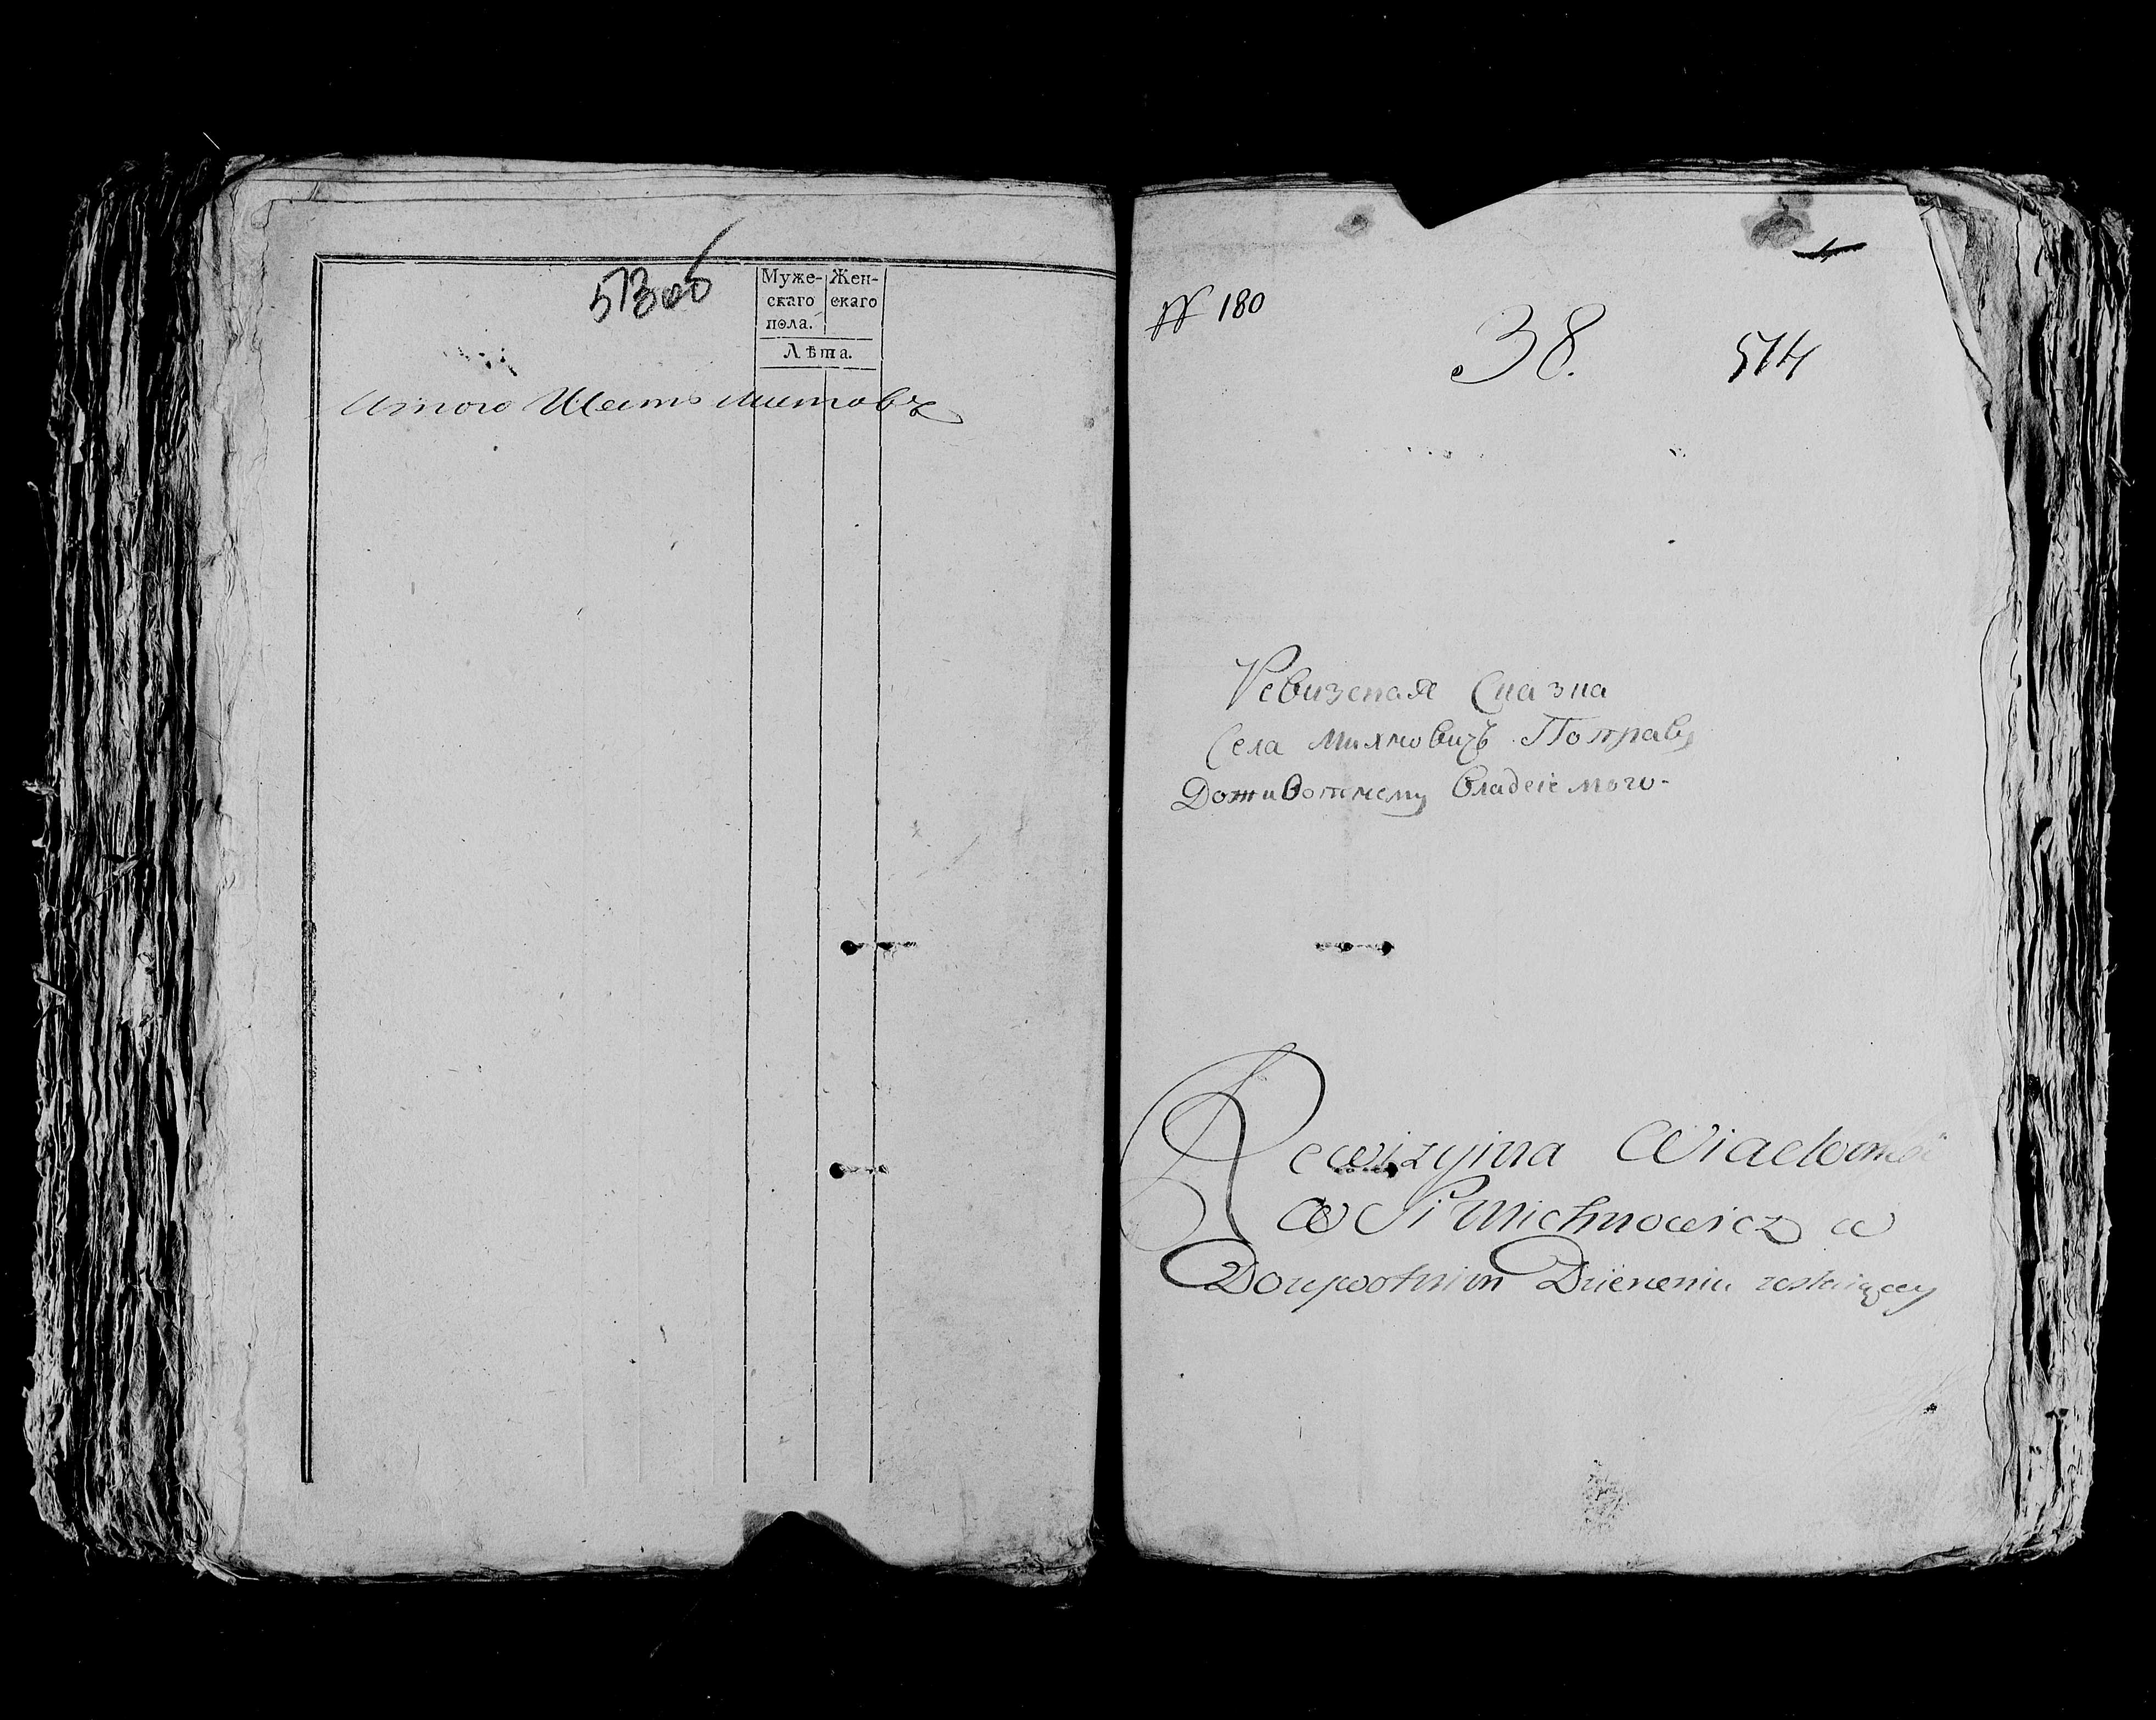 513 об
Муже- Жен-
скаго скаго
пола.
Лѣта.
Итого Шесть листовъ
№ 180
38. 514
Ревизская Сказка
Села Михновичъ По праву
Доживотнему Владеемого-
Rewizyjna Wiadomość
W Si Michnowicz w
Dożywotnim Dzierżeniu zostaiącey